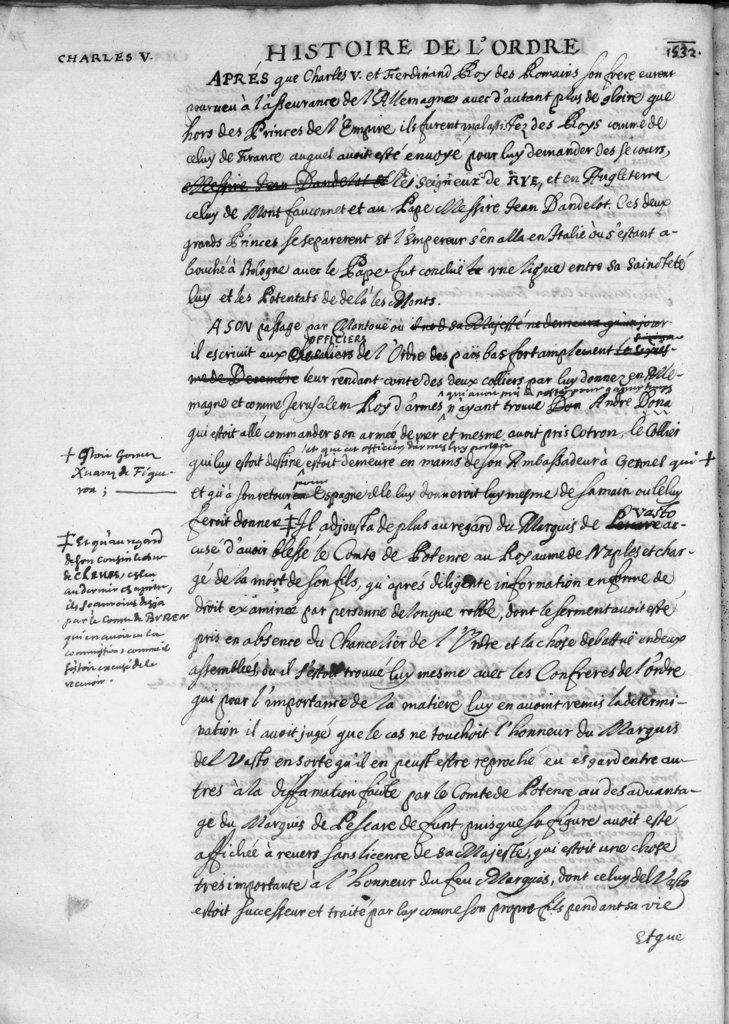 CHARLES V.
HISTOIRE DE L'ORDRE
1532.
APRÉS que Charles V. et Ferdinand Roy des Romains son frere eurent
pourueu à l'asseurance de l'Allemagne avec d'autant plus de gloire que
hors des Princes de l'Empire ils furent mal assistez des Roys comme de
celuy de France auquel avoit esté envoyé pour luy demander des secours,
Messire Jean Dandelot et le Seigneur de RYE, et en Angleterre
celuy de Montfauconnet et au Pape Messire Jean Dandelot. Ces deux
grands Princes se separerent et l'Empereur s'en alla en Italie où s'estant a-
bouché à Bologne avec le Pape fut conclüe vne ligue entre sa Saincteté
luy et les Potentats de delà les Monts.
A SON passage par Mantouë où sa Majesté ne demeura qu'un jour
OFFICIERS
il escrivit aux Chevaliers de l'Ordre des païs bas fort amplement le sixies-
me de Decembre leur rendant conte des deux colliers par luy donnez en Alle-
magne et comme Jerusalem Roy d'armes n'ayant trouvé Don André Doria
qui estoit allé commander son armee de mer et mesme avoit pris Cotron, le Collier
qui luy estoit destiné estoit demeuré en mains de son Ambassadeur à Gennes qui +
+ Estoit Gomez
Xuarez de Figue-
roa;
et qu'à son retour en Espagne il le luy donneroit luy mesme de sa main ou le luy
Vasto
feroit donner ‡ Il adjousta de plus au regard du Marquis de Pescare ac-
‡ Et qu'au regard
de son cousin le duc
de CLEVES, esleu
au dernier chapitre,
ils scauroient desja
par le Comte de BUREN
qui en avoit eu la
commission comme il
s'estoit excusé de le
recevoir.
cusé d'avoir blessé le Comte de Potence au Royaume de Naples et char-
gé de la mort de son fils, qu'après diligente information en forme de
droit examinée par personne de longue robbe, dont le serment avoit esté
pris en absence du Chancelier de l'Ordre et la chose debattuë en deux
assemblées où il s'estoit trouvé luy mesme avec les Confreres de l'ordre
qui pour l'importance de la matiere luy en avoint remis la determi-
nation il avoit jugé que le cas ne touchoit l'honneur du Marquis
del Vasto en sorte qu'il en peust estre reproché eu esgard entre au-
tres à la diffamation faite par le Comte de Potence au desadvanta-
ge du Marquis de Pescare defunt puisque sa figure avoit esté
affichée à revers sans licence de sa Majesté, qui estoit une chose
tres importante à l'honneur du feu Marquis, dont celuy del Vasto
estoit successeur et traité par luy comme son propre fils pendant sa vie
Et que